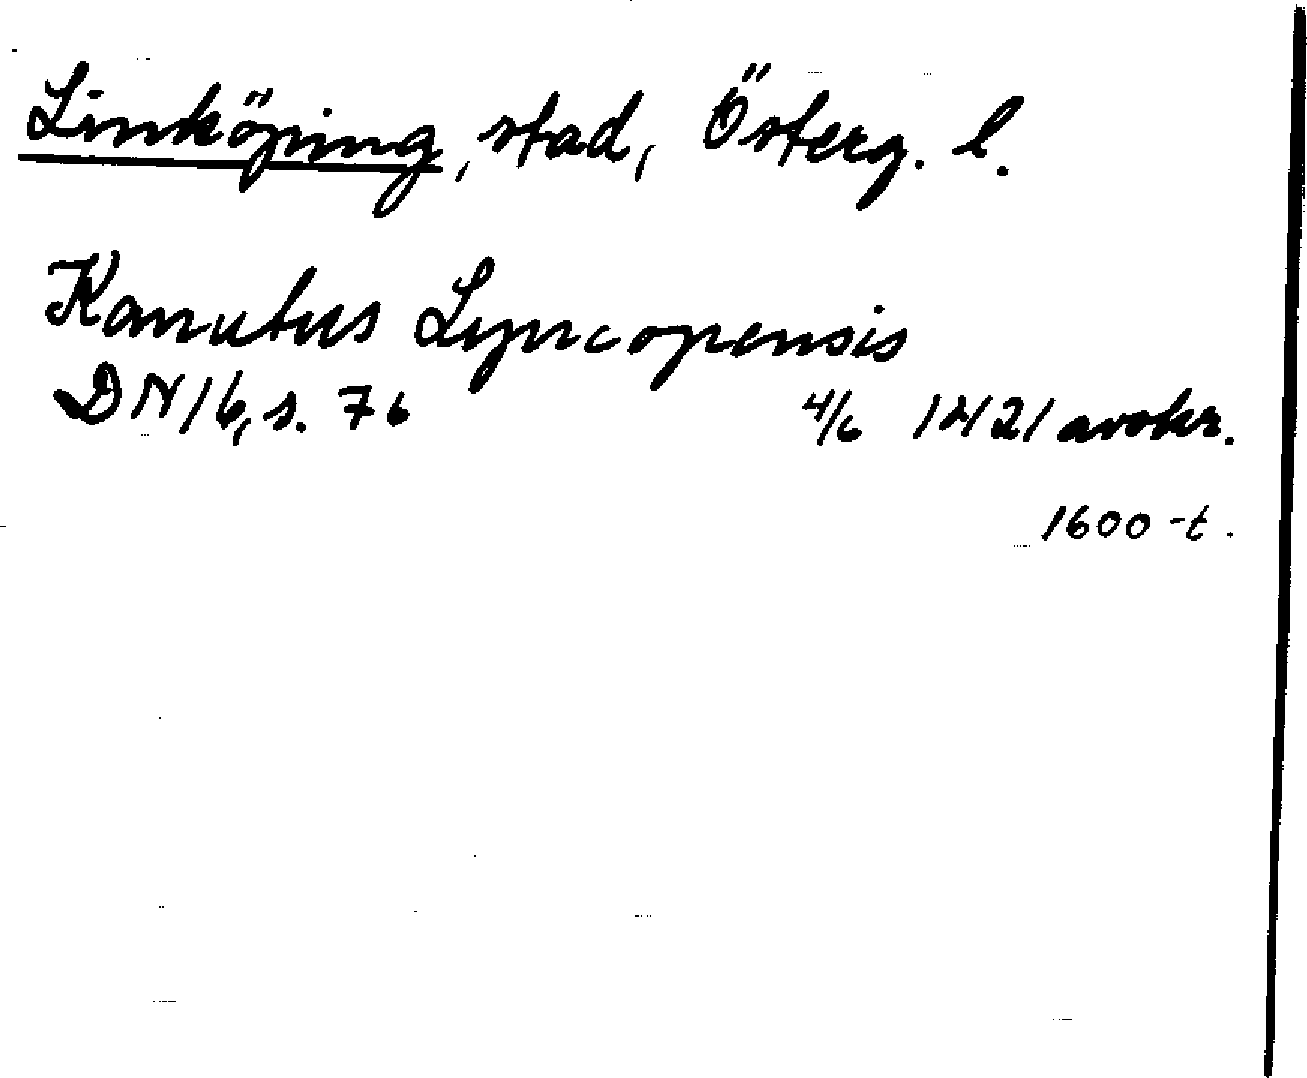 Linköping, stad, Österg. l.
Kanutus Lyncopensis
DN 16, s. 76 4/6 1421 avskr.
1600-t.